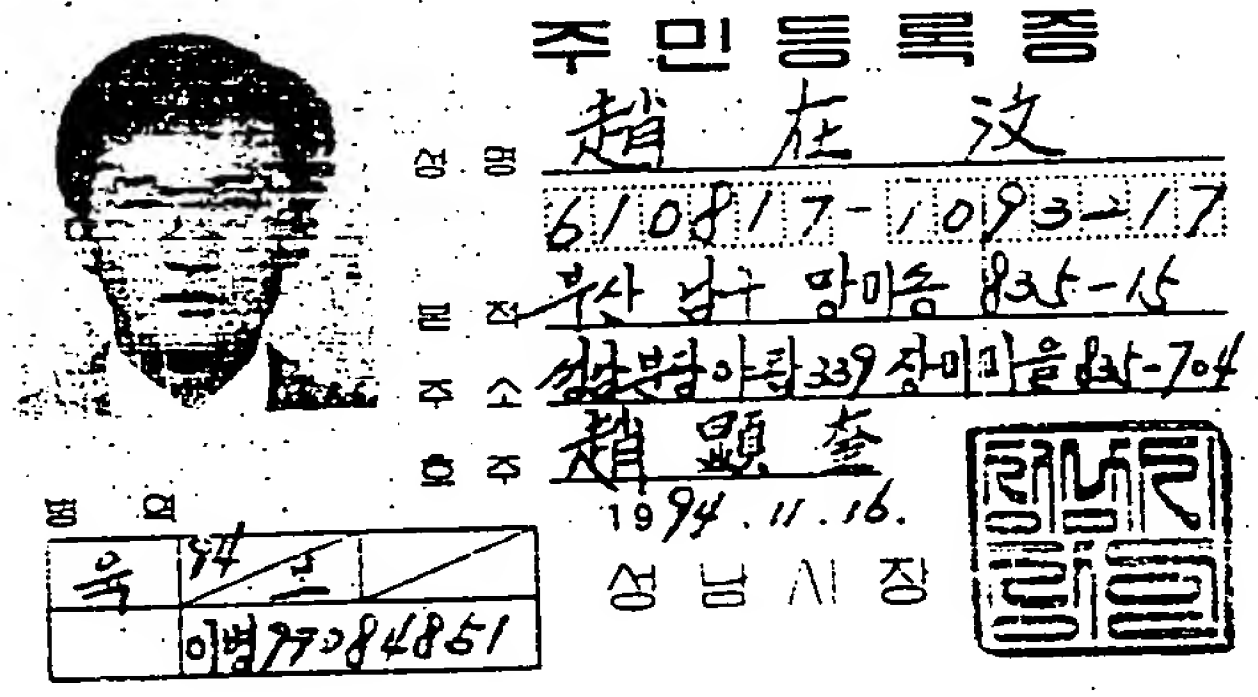 주민등록증
성명 趙在汶
610817-
본적 부산 남구 망미동 835-15
주소 성남분당야탑339 장미마을 835-704
호주 趙顯奎
1994.11.16.
성남시장
병역
육 84
이병 77084851